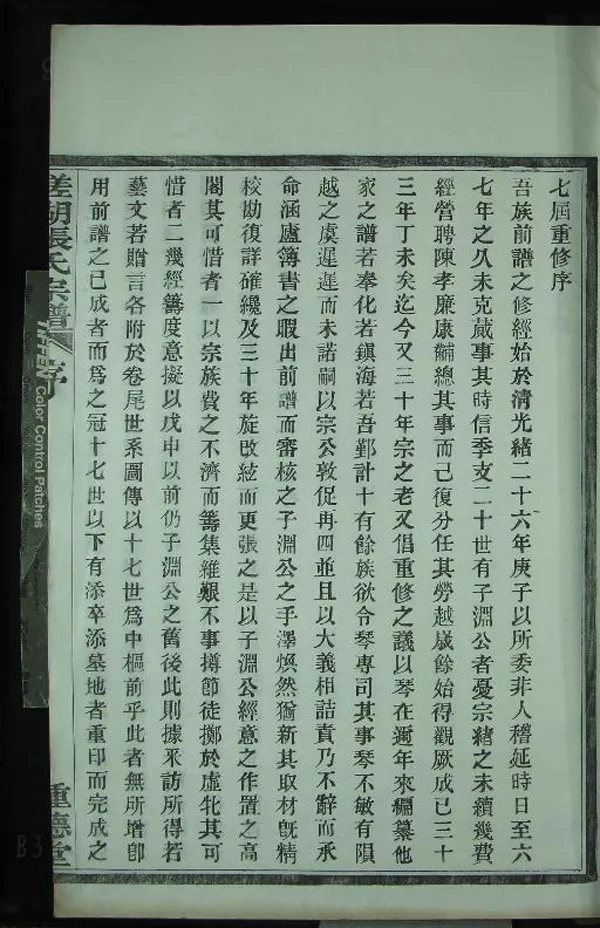 七屆重修序
吾族前譜之修經始於清光緒二十六年庚子以所委非人稽延時日至六
七年之久未克蕆事其時信季支二十世有子淵公者憂宗緒之未續幾費
經營聘陳孝廉康黼總其事而己復分任其勞越歲餘始得觀厥成已三十
三年丁未矣迄今又三十年宗之老又倡重修之議以琴在邇年來編纂他
家之譜若奉化若鎮海若吾鄞計十有餘族欲令琴專司其事琴不敏有隕
越之虞遲遲而未諾嗣以宗公敦促再四並且以大義相詰責乃不辭而承
命涵廬簿書之暇出前譜而審核之子淵公之手澤煥然猶新其取材旣精
校勘復詳確纔及三十年旋改絃而更張之是以子淵公經意之作置之高
閣其可惜者一以宗族費之不濟而籌集維艱不事撙節徒擲於虛牝其可
惜者二幾經籌度意擬以戊申以前仍子淵公之舊後此則據釆訪所得若
藝文若贈言各附於卷尾世系圖傳以十七世爲中樞前乎此者無所增卽
用前譜之已成者而爲之冠十七世以下有添卒添墓地者重印而完成之
湖張氏宗譜
序
重德堂
Color Control Patches
B3